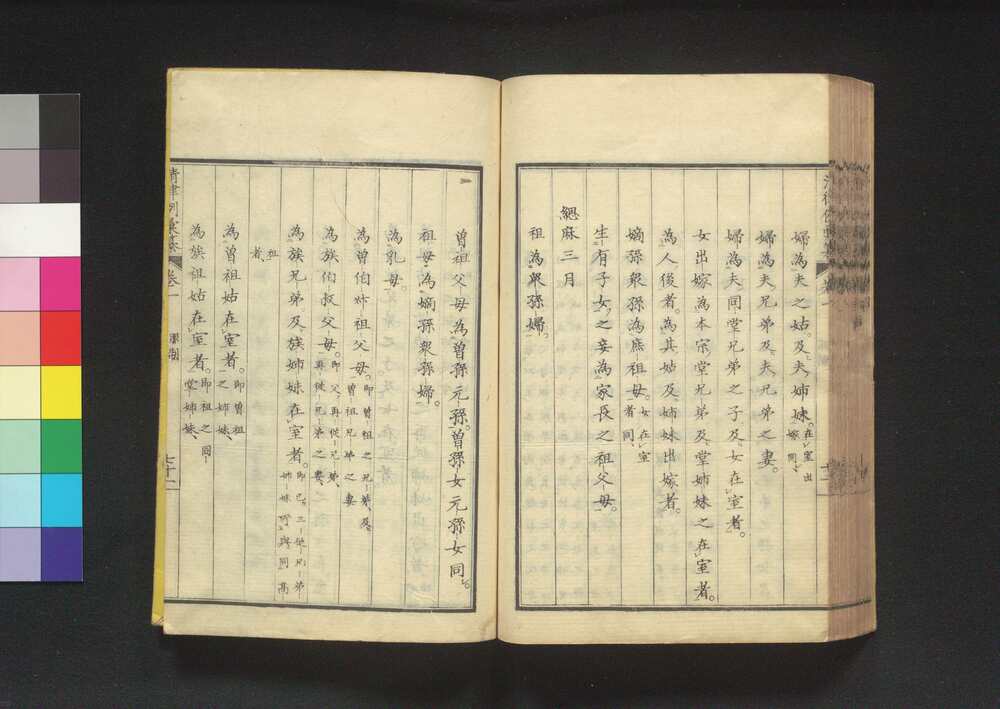 婦為夫之姑。及夫姉妹。在室出嫁同。
婦為夫兄弟及夫兄弟之妻。
婦為夫同堂兄弟之子及女在室者。
女出嫁為本宗堂兄弟及堂姉妹之在室者。
為人後者。為其姑及姉妹出嫁者。
嫡孫衆孫為庶祖母。女在室者同
生有子女之妾為家長之祖父母。
緦麻三月
祖為衆孫婦。
曽祖父母為曽孫元孫。曽孫女元孫女同。
祖母為嫡孫衆孫婦。
為乳母
為曽伯叔祖父母。即曽祖之兄弟及曽祖兄弟之妻
為族伯叔父母。即父再従兄弟、再従兄弟之妻
為族兄弟及族姉妹在室者。即己三従兄弟姉妹所與同高
祖者、
為曽祖姑在室者。即曽祖之姉妹、
為族祖姑在室者。即祖之同堂姉妹、
清律例彙纂
巻一
七十一